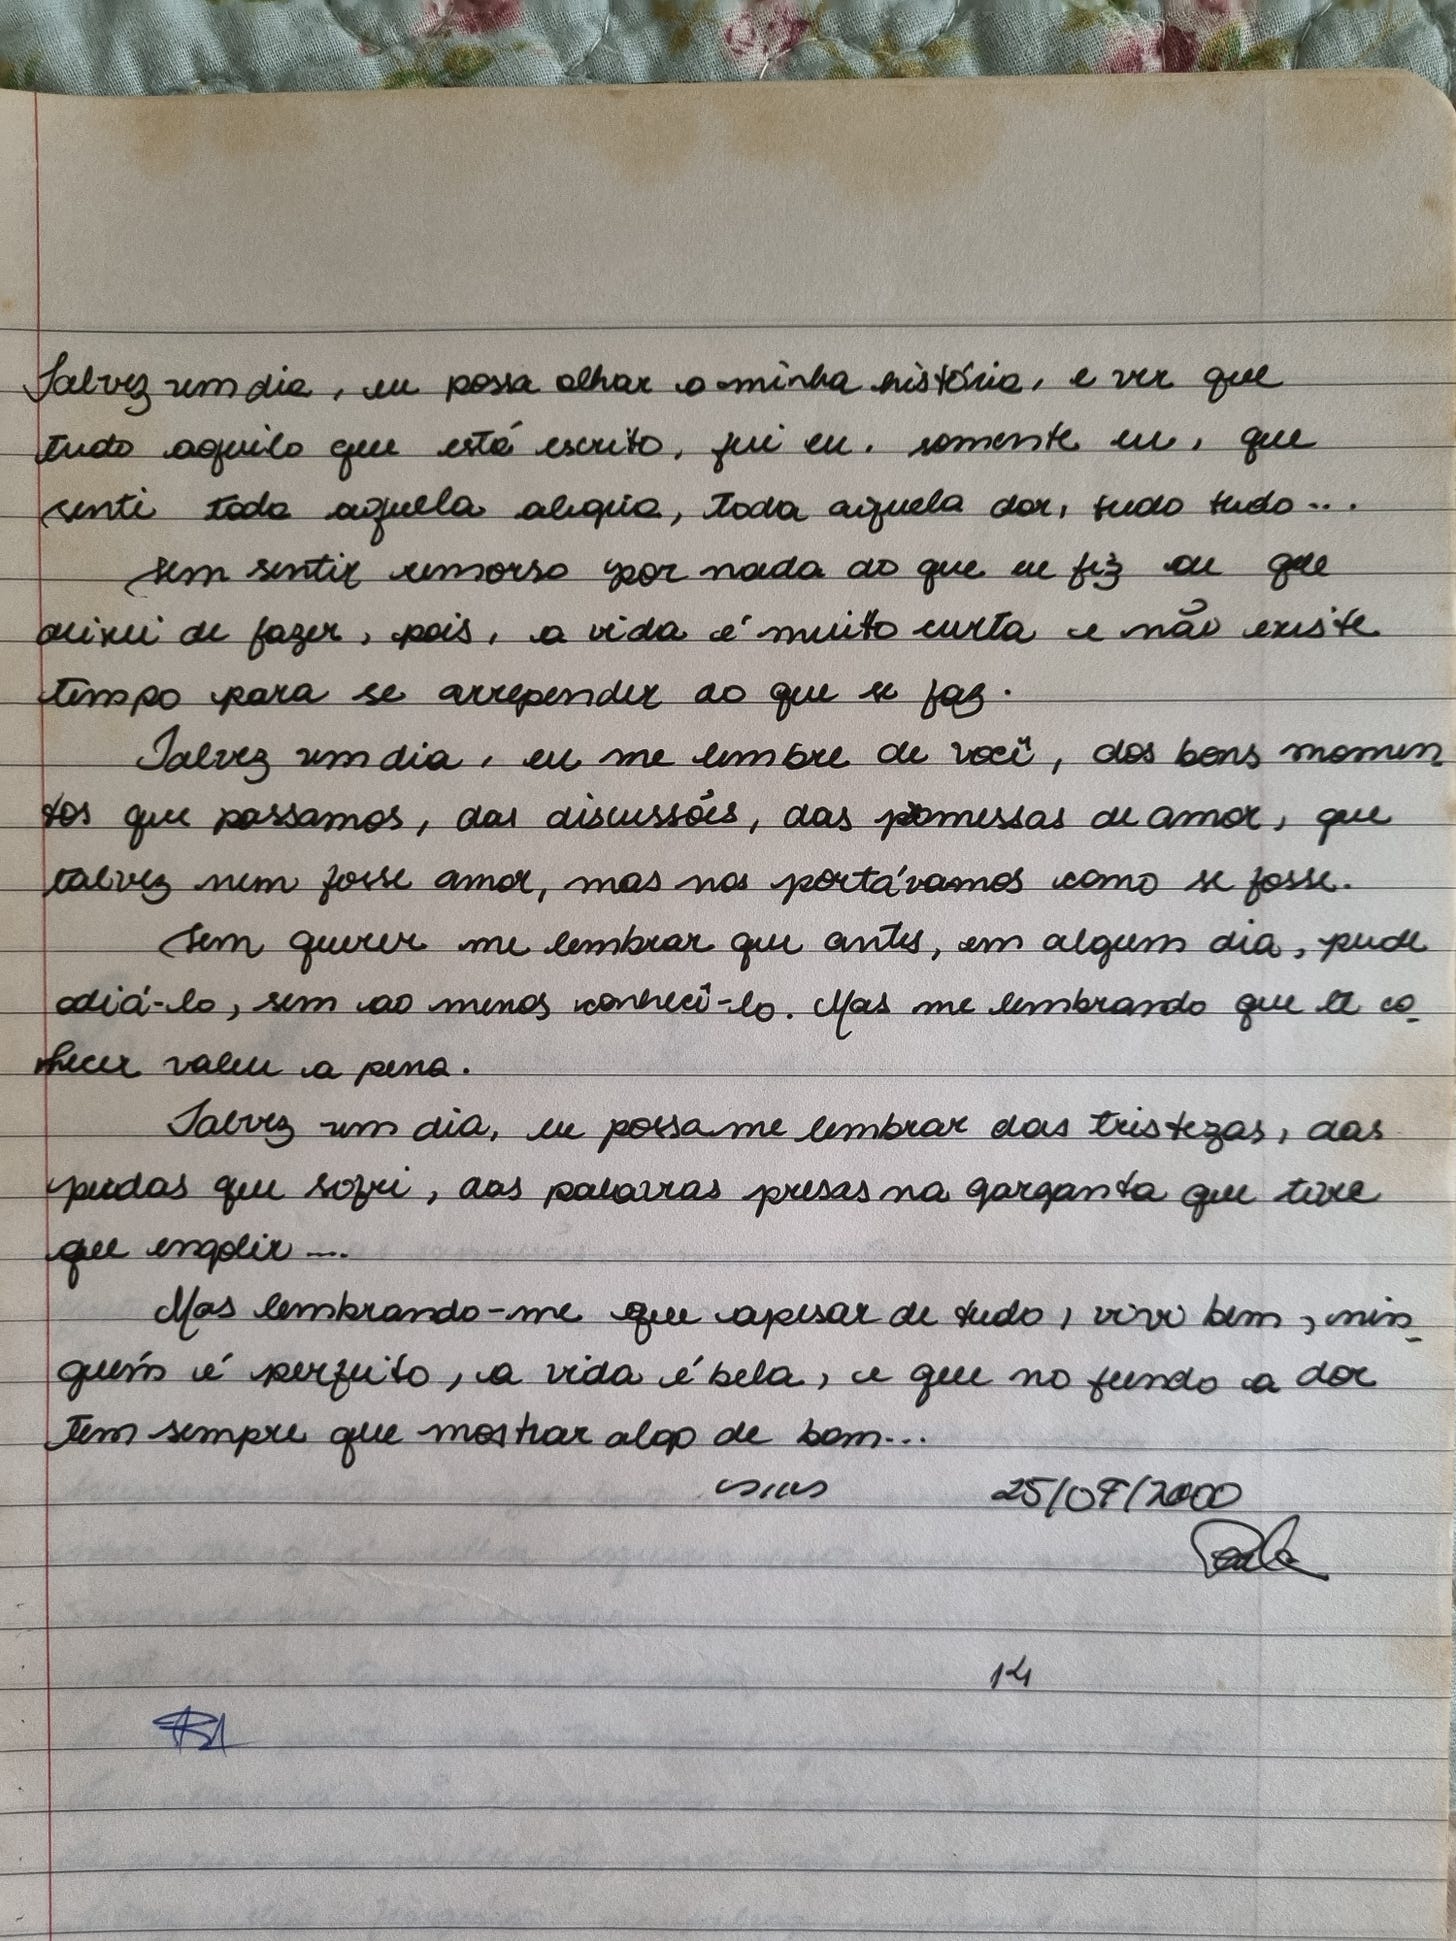 Talvez um dia, eu possa olhar a minha história, e ver que
tudo aquilo que está escrito, fui eu, somente eu, que
senti toda aquela alegria, toda aquela dor, tudo tudo...
Sem sentir remorso por nada do que eu fiz ou que
deixei de fazer, pois, a vida é muito curta e não existe
tempo para se arrepender do que se faz.
Talvez um dia, eu me lembre de você, dos bons momen
tos que passamos, das discussões, das promessas de amor, que
talvez nem fosse amor, mas nos portávamos como se fosse.
Sem querer me lembrar que antes, em algum dia, pude
odiá-lo, sem ao menos conhecê-lo. Mas me lembrando que te co-
nhecer valeu a pena.
Talvez um dia, eu possa me lembrar das tristezas, das
perdas que sofri, das palavras presas na garganta que tive
que engolir....
Mas lembrando-me que apesar de tudo, vivi bem, nin-
guém é perfeito, a vida é bela, e que no fundo a dor
tem sempre que mostrar algo de bom...
25/07/2000
Paula
14